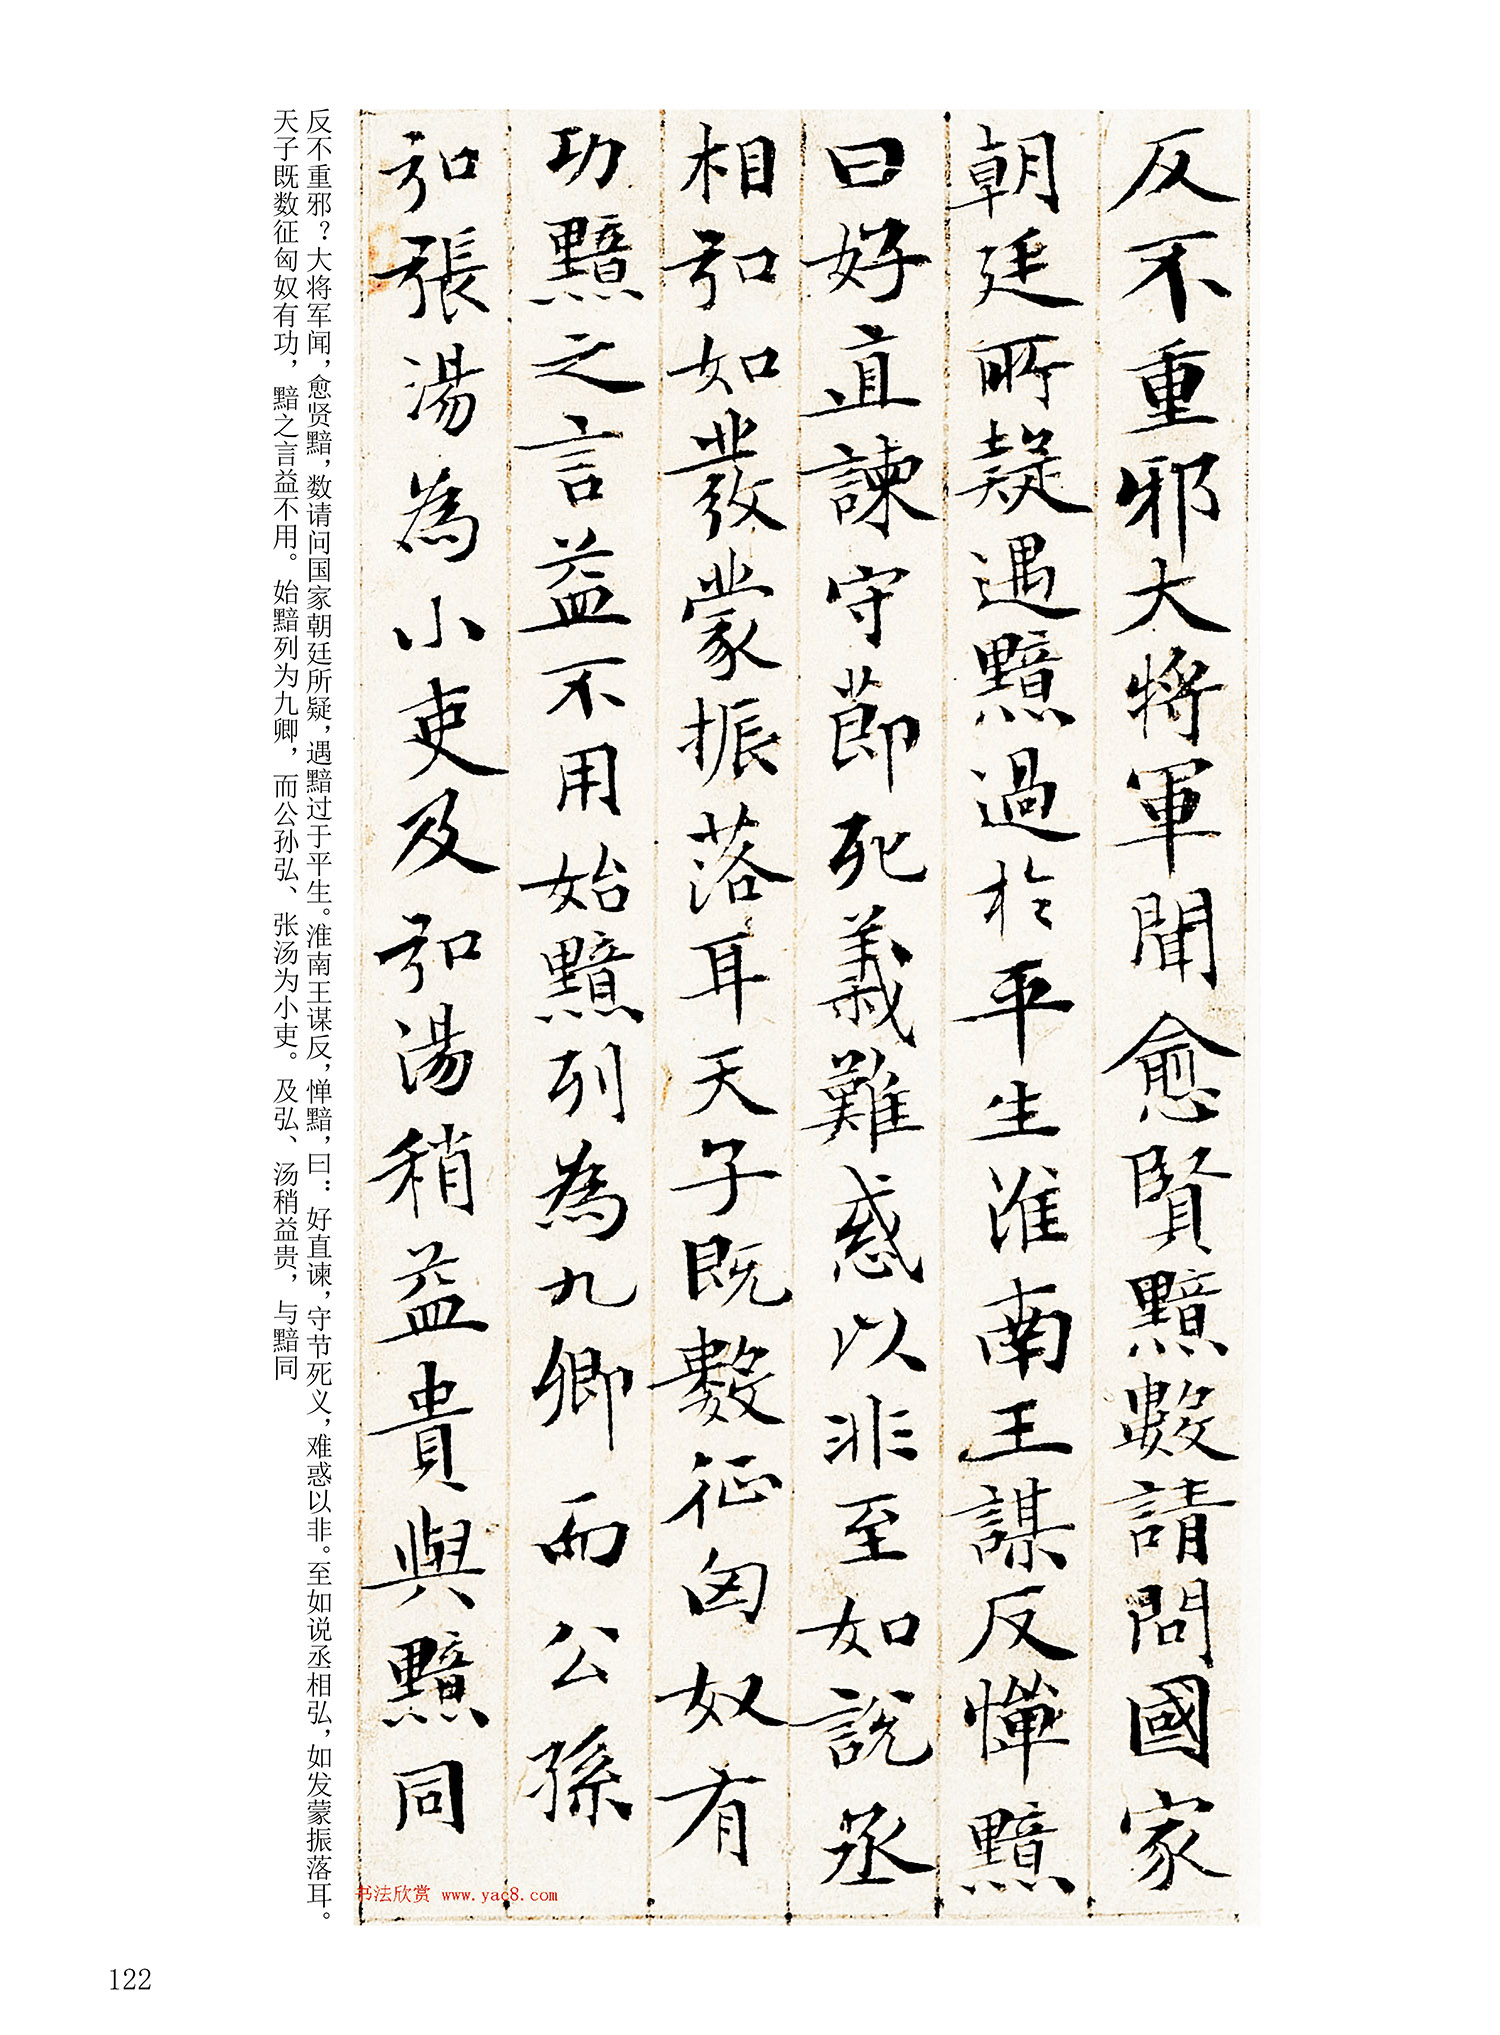 反不重邪大将軍聞愈賢黯數請問國家
朝廷所疑遇黯過於平生淮南王謀反憚黯
曰好直諫守節死義難惑以非至如說丞
相弘如發蒙振落耳天子既數征匈奴有
功黯之言益不用始黯列為九卿而公孫
弘張湯為小吏及弘湯稍益貴與黯同
反不重邪？大将军闻，愈贤黯，数请问国家朝廷所疑，遇黯过于平生。淮南王谋反，惮黯，曰：好直谏，守节死义，难惑以非。至如说丞相弘，如发蒙振落耳。
天子既数征匈奴有功，黯之言益不用。始黯列为九卿，而公孙弘、张汤为小吏。及弘、汤稍益贵，与黯同
书法欣赏 www.yac8.com
122